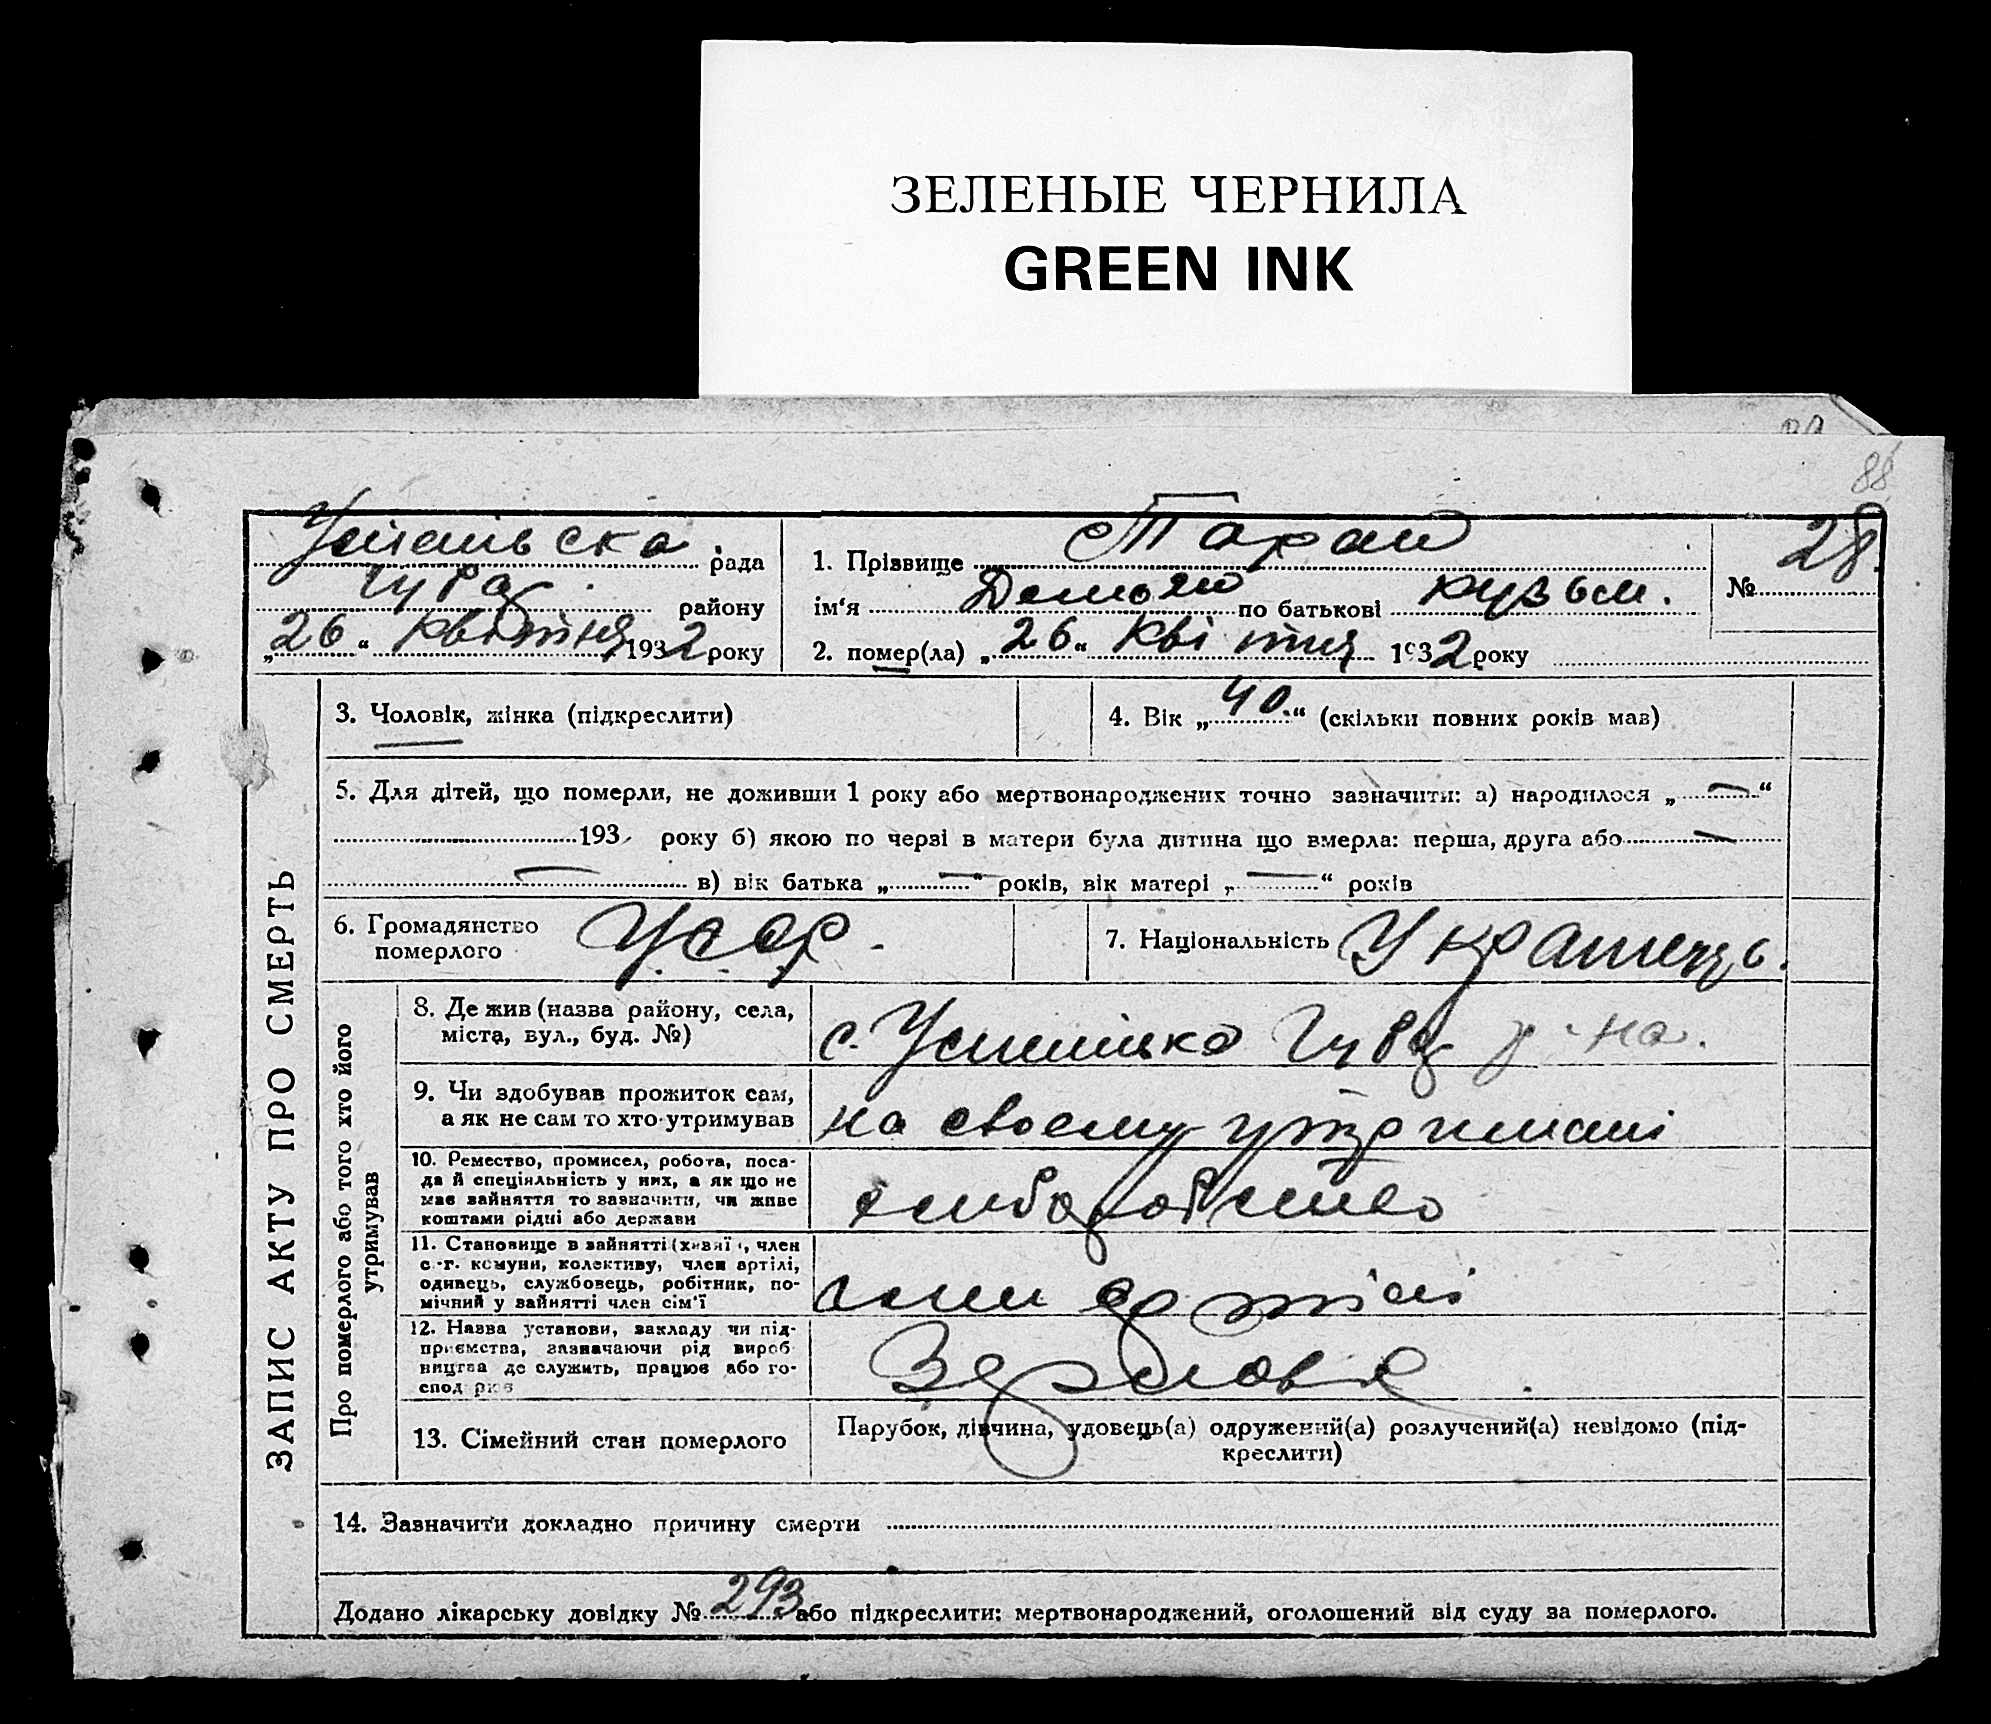 ЗЕЛЕНЫЕ ЧЕРНИЛА
GREEN INK
88
рада
району
„26“ квітня 1932 року
1. Прізвище Таран
ім‘я Демьян по батькові кузьм.
2. помер(ла) „26“ квітня 1932 року
№ 28.
ЗАПИС АКТУ ПРО СМЕРТЬ
3. Чоловік, жінка (підкреслити)
4. Вік „40.“ (скільки повних років мав)
5. Для дітей, що померли, не доживши 1 року або мертвонароджених точно зазначити: а) народилося „—“
193 року б) якою по черзі в матери була дитина що вмерла: перша, друга або —
— в) вік батька „—“ років, вік матері „—“ років
6. Громадянство
померлого
У.С.С.Р.
7. Національність Украінець.
Про померлого або того хто його
утримував
8. Де жив (назва району, села,
міста, вул., буд. №)
с. р-на.
9. Чи здобував прожиток сам,
а як не сам то хто утримував
на своему утримані
10. Ремество, промисел, робота, поса-
да й спеціяльність у них, а як що не
має зайняття то зазначити, чи живе
коштами рідні або держави
хлиборобство
11. Становище в зайнятті (хазяї, член
с.-г. комуни, колективу, член артілі,
одинець, службовець, робітник, по-
мічний у зайнятті член сім‘ї
член артілі
12. Назва установи, закладу чи під-
приємства, зазначаючи рід вироб-
ництва де служить, працює або го-
сподарює
13. Сімейний стан померлого
Парубок, дівчина, удовець(а) одружений(а) розлучений(а) невідомо (під-
креслити)
14. Зазначити докладно причину смерти
Додано лікарську довідку № 293 або підкреслити: мертвонароджений, оголошений від суду за померлого.